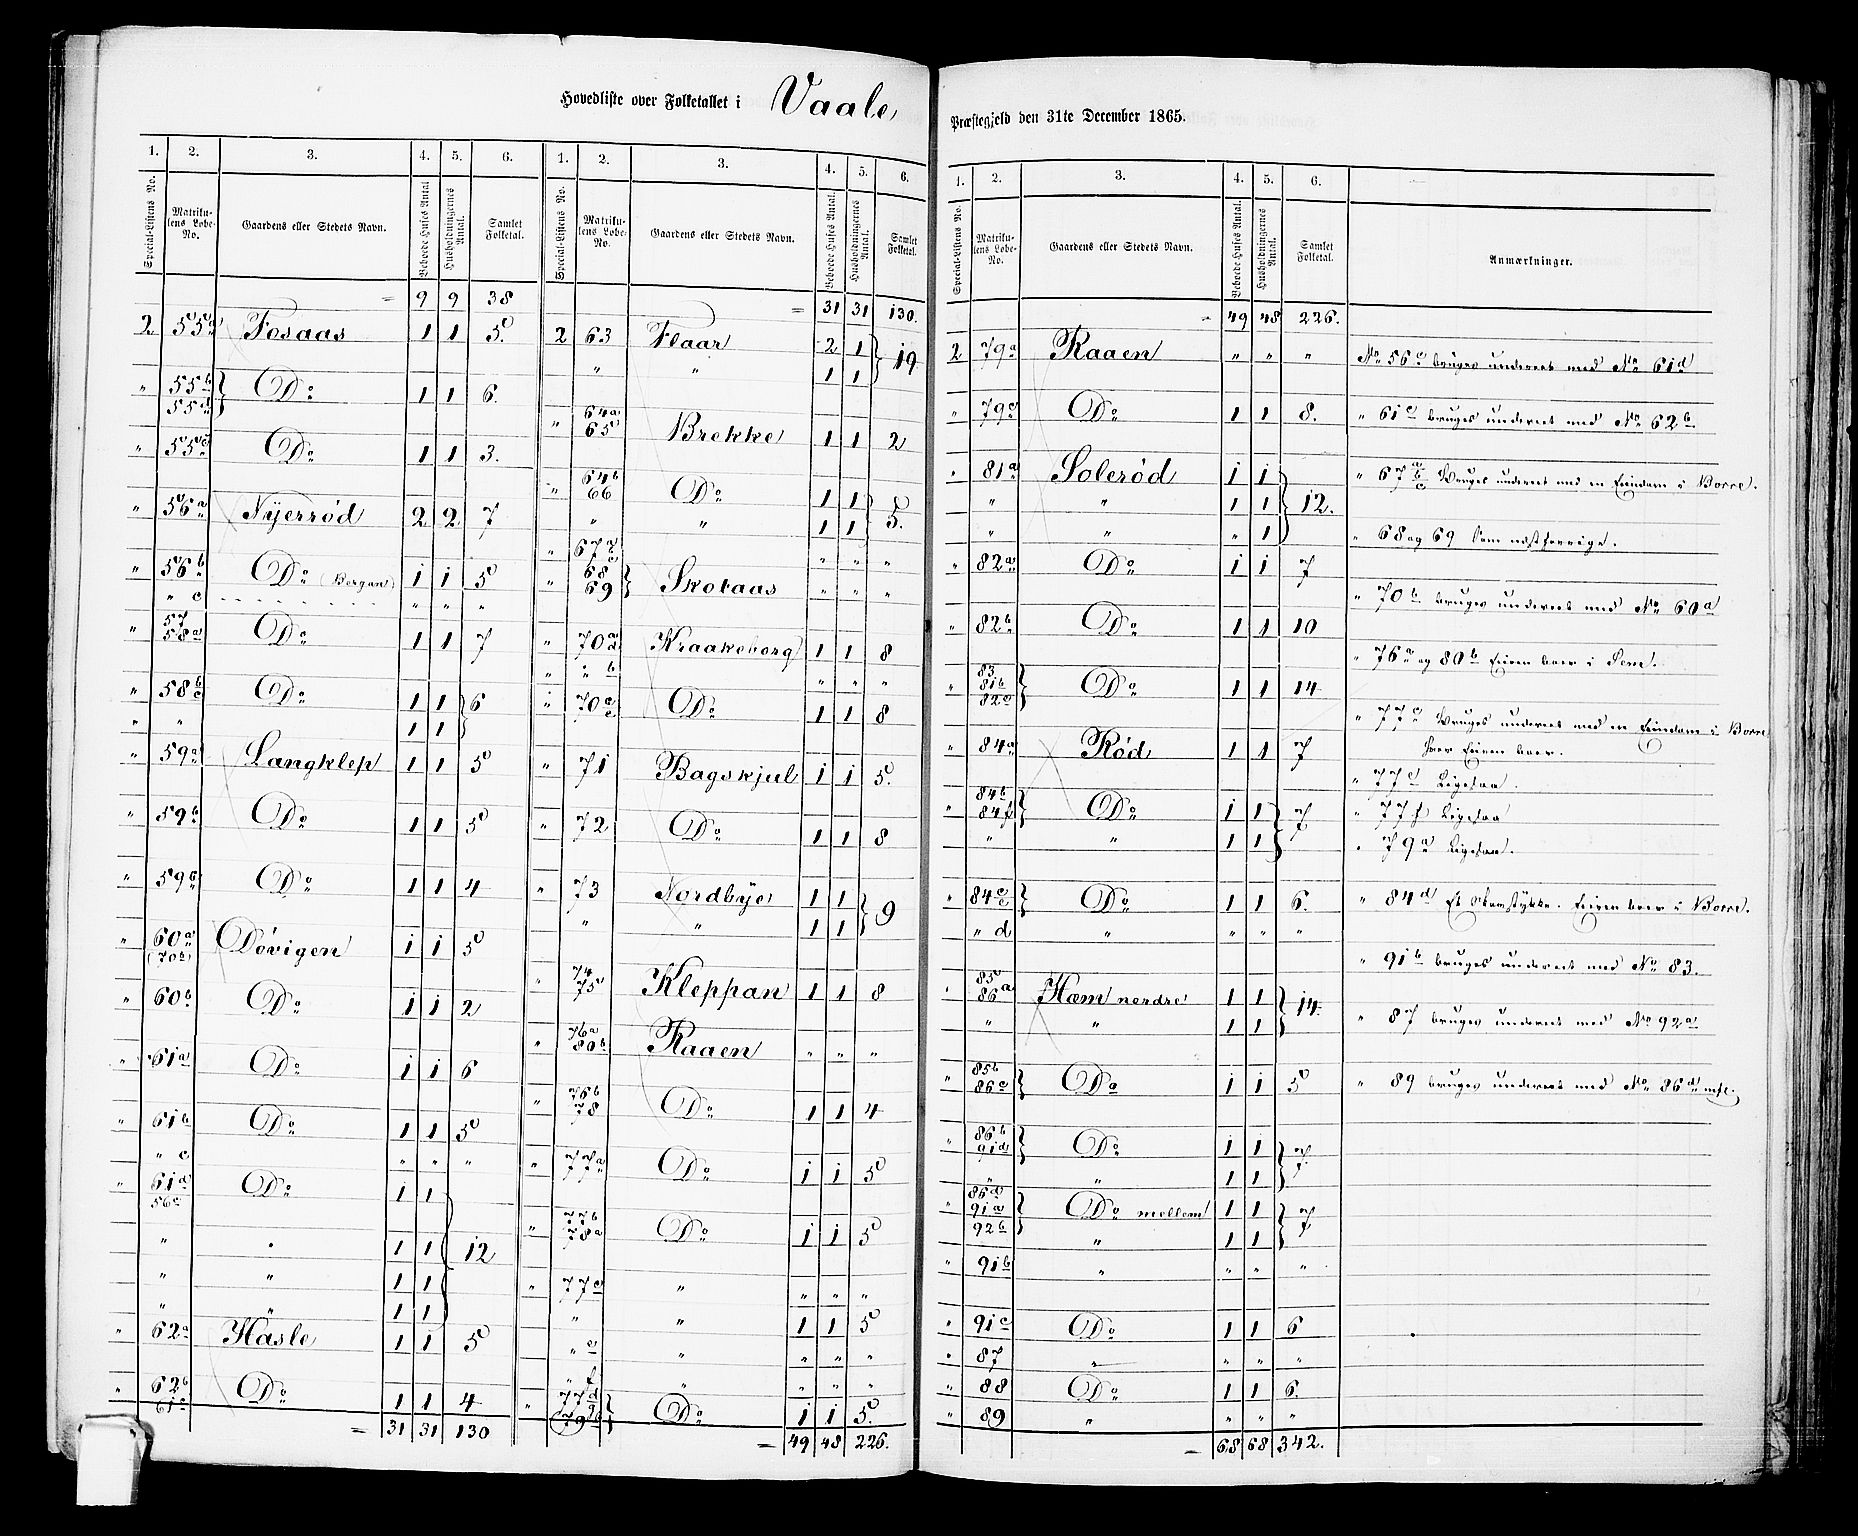 Hovedliste over Folketallet i Vaale
1. 2. 3. 4. 5. 6. 1. 2. 3. 4. 5. 6.
Special-Listens No. Matrikulens Løbe-No. Gaardens eller Stedets Navn. Beboede Huses Antal Husholdningernes Antal. Samlet Folketal. Special-Listens No. Matrikulens Løbe-No. Gaardens eller Stedets Navn. Beboede Huses Antal. Husholdningernes Antal. Samlet Folketal.
= 9 9 38
2 55a Fosaas 1 1 5.
" 55b 55d } Do 1 1 6.
" 55c Do 1 1 3.
" 56a Nyerrød 2 2 7
" 56b Do (Bergan) 1 1 5
" c " " "
" 57 58a Do 1 1 7
" 58b c Do 1 1 } 6
" " 1 1
" 59a Langklep 1 1 5
" 59b Do 1 1 5
" 59c Do 1 1 4
" 60a (70b) Døvigen 1 1 5
" 60b Do 1 1 2
" 61a Do 1 1 6
" 61b Do 1 1 5
" c " " "
" 61d 56c Do 1 1
" " 1 1 } 12
" " 1 1
" " 1 1
" 62a Hasle 1 1 5
" 62b 61c Do 1 1 4
= 31 31 130
= 31 31 130.
2 63 Flaar 2 1 } 19
" " 1 1
" 64a 65 Brekke 1 1 2
" 64b 66 Do 1 1 } 5.
" " 1 1
" 67 " " "
" 68 69 } Skotaas " " "
" 70a Kraakeborg 1 1 8
" " b " " "
" 70 Do 1 1 8
" 71 Bagskjul 1 1 5.
" 72 Do 1 1 8
" 73 Nordbye 1 1 } 9
" " 1 1
" 74 75 Kleppan 1 1 8
" 76a 80b Raaen " " "
" 76b 78 Do 1 1 4
" 77a Do 1 1 5
" 77b 78a Do 1 1 5
" 77c " " " "
" " 1 1 5
" e " " " "
" f " " " "
" 77d 79b } Do 1 1 5.
= 49 48 226.
Præstegjeld den 31te December 1865.
1. 2. 3. 4. 5. 6.
Special-Listens No. Matrikulens Løbe-No. Gaardens eller Stedets Navn. Beboede Huses Antal. Husholdningernes Antal. Samlet Folketal. Anmærkninger.
= 49 48 226.
2 79a Raaen " " " No 56c bruges underet med No 61d
" 79c Do 1 1 8. " 61c bruges underet med No 62b
" 81a Solerød 1 1 " 67 a b c Bruges underet med en Eiendom i Borre.
" " 1 1 } 12.
" " " 1 " 68 og 69 Som næstforrige.
" 82a Do 1 1 7
" 70b bruges underet med No 60a
" 82b Do 1 1 10
" 76a og 80b Eieren boer i
" 83 81b 82c } Do 1 1 14
" 77c Bruges underet med en Eiendom i Borre
" 84a Rød 1 1 7 hvor Eieren boer.
" 77e Ligesaa.
" 84b 84f } Do 1 1 } 7 " 77f Ligesaa
" " 1 1 " 79a Ligesaa.
" 84c e } Do 1 1 6. " 84d Et Skovstykke. Eieren boer i Borre.
" " d " " " "
" 91b bruges underet med No 83.
" 85 86a Hæm nerdre 1 1 } 14.
" " 1 1 " 87 bruges underet med No 92a
" 85b 86c } Do 1 1 5 " 89 bruges underet med No 86d mfl.
" 86b 91d } Do 1 1 } 7
" " 1 1
" 86d 91a 92b } Do mellem 1 1 } 7
" 1 1
" 91b " " " "
" 91c Do 1 1 6
" 87 " " " "
" 88 Do 1 1 6.
" 89 " " " "
= 68 68 342.